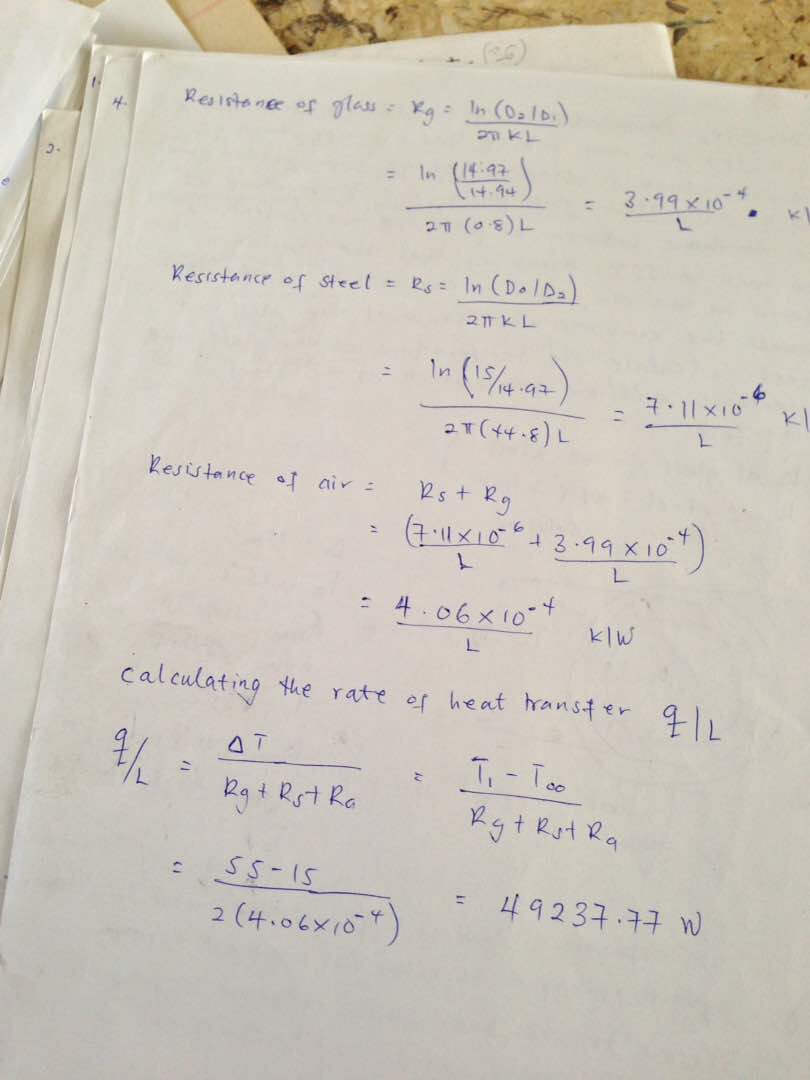 (26)
1.
2.
4. Resistance of glass = Rg = ln (D2/D1) / 2π KL
= ln (14.97/14.94) / 2π (0.8) L = 3.99 x 10^-4 / L . K/
Resistance of steel = Rs = ln (Do/D2) / 2π K L
= ln (15/14.97) / 2π (44.8) L = 7.11 x 10^-6 / L K/
Resistance of air = Rs + Rg
= (7.11 x 10^-6 / L + 3.99 x 10^-4 / L)
= 4.06 x 10^-4 / L K/W
calculating the rate of heat transfer q/L
q/L = ΔT / Rg + Rs + Ra = T1 - T∞ / Rg + Rs + Ra
= 55 - 15 / 2 (4.06 x 10^-4) = 49237.77 W